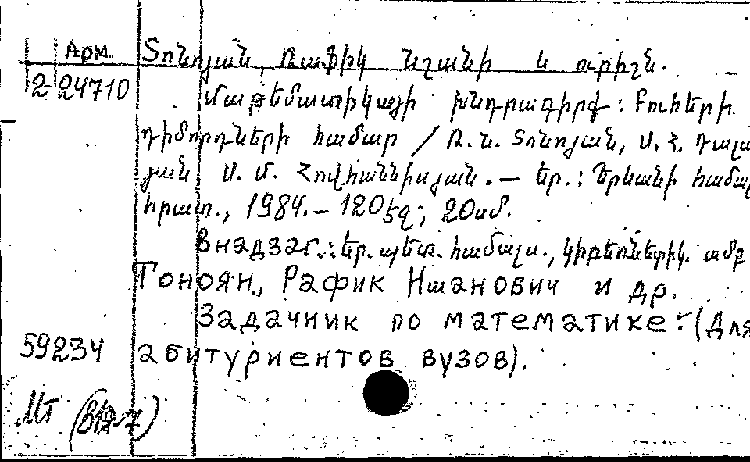 Арм. Տոնոյան Ռաֆիկ Նշանի և ուրիշն.
2 24710 Մաթեմատիկայի խնդրագիրք: Բուհերի
դիմորդների համար / Ռ. Ն. Տոնոյան, Ս. Հ. Դալա
յան Ս. Մ. Հովհաննիսյան. — Եր.: Երևանի համալ
հրատ., 1984. – 120 էջ; 20սմ.
В надзаг.: Եր. պետ. համալս., կիբեռնետիկ. ամբ
Тоноян, Рафик Ншанович и др.
Задачник по математике: (Для
59234 абитуриентов вузов).
Мт